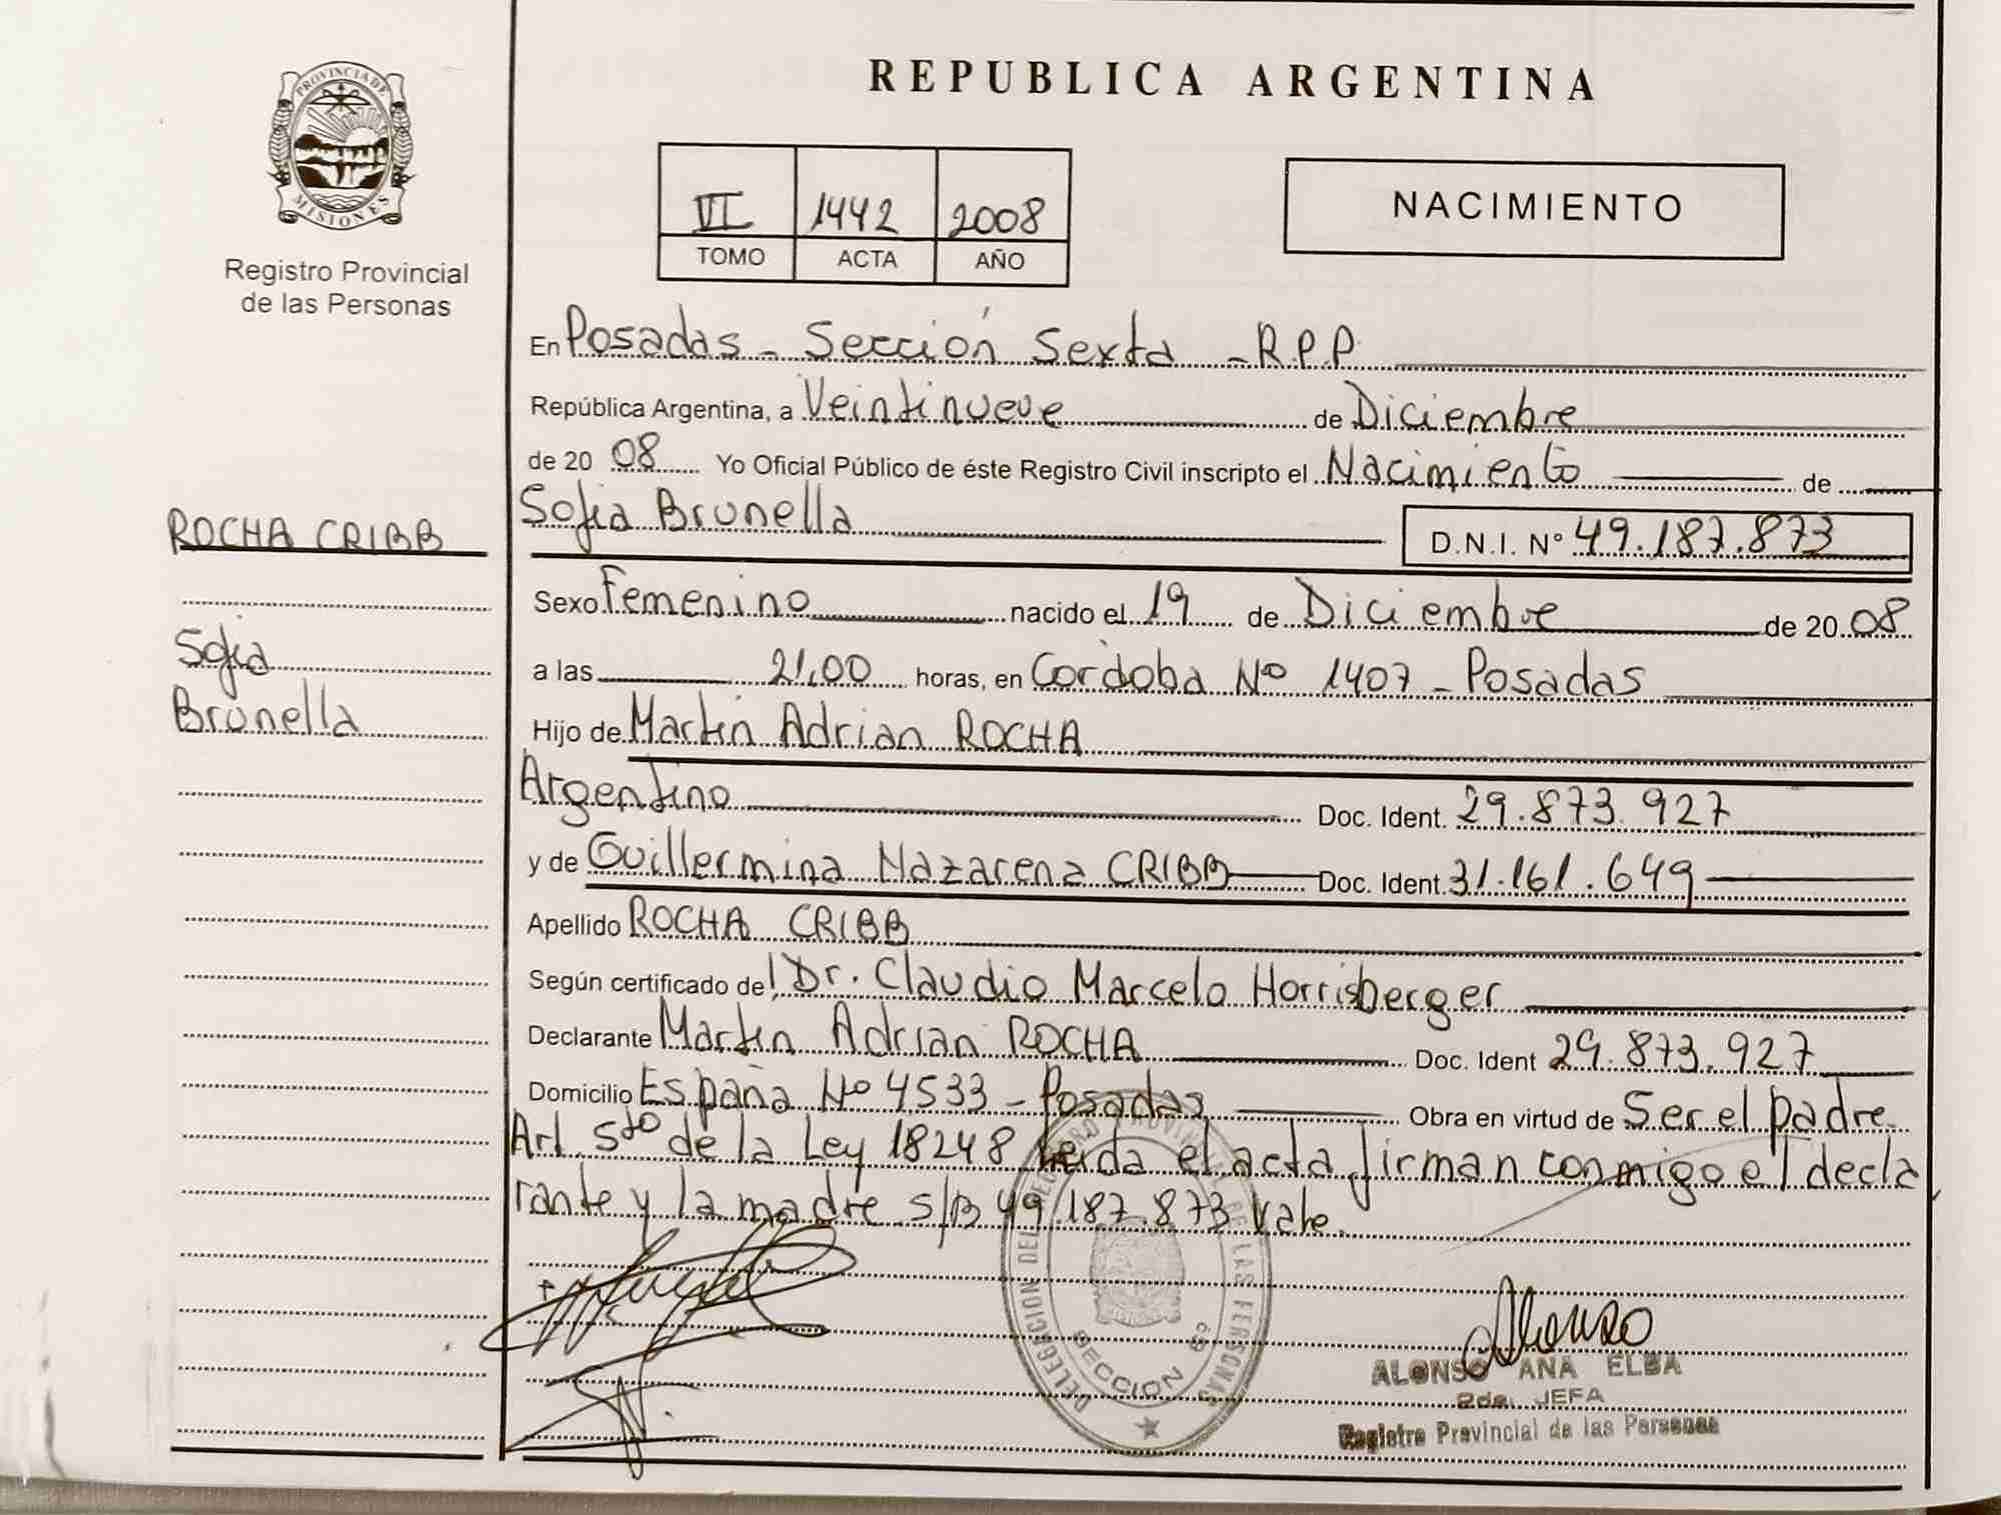 PROVINCIA DE
MISIONES
Registro Provincial
de las Personas
REPUBLICA ARGENTINA
VI 1442 2008
TOMO ACTA AÑO
NACIMIENTO
En Posadas - Sección Sexta - R.P.P
República Argentina, a Veintinueve de Diciembre
de 20 08 Yo Oficial Público de éste Registro Civil inscripto el Nacimiento de
Sofia Brunella
D.N.I. Nº 49.187.873
ROCHA CRIBB
Sofia
Brunella
Sexo Femenino nacido el 19 de Diciembre de 20 08
a las 21,00 horas, en Cordoba Nº 1407 - Posadas
Hijo de Martin Adrian ROCHA
Argentino Doc. Ident. 29.873.927
y de Guillermina Nazarena CRIBB Doc. Ident. 31.161.649
Apellido ROCHA CRIBB
Según certificado del Dr. Claudio Marcelo Horrisberger
Declarante Martin Adrian ROCHA Doc. Ident 29.873.927
Domicilio España Nº 4533 - Posadas Obra en virtud de Ser el padre
Art. 5to de la Ley 18248 leida el acta firman conmigo el decla
rante y la madre s/B 49.187.873 Vale.
DELEGACION DEL REGISTRO PROVINCIAL DE LAS PERSONAS
SECCION 6a
Alonso
ALONSO ANA ELBA
2da. JEFA
Registro Provincial de las Personas